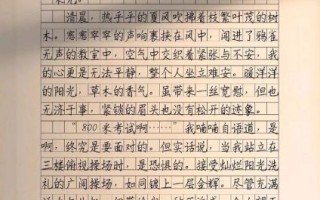 清晨，热乎乎的夏风吹拂着枝繁叶茂的树
木。窸窸窣窣的声响裹挟在风中，闯进了鸦雀
无声的教室中，空气中交织着紧张与不安，我
的心更是无法平静，整个人坐立难安。暖洋洋
的阳光，草木的香气。虽带来一丝宽慰，但也
无济于事，紧锁的眉头也没有松开的迹象。
“800米考试啊……”我喃喃自语道，是
啊，终究是要面对的。但实话说，当我站立在
三楼俯视操场时，是恐惧的。接受灿烂阳光洗
礼的广阔操场，如同镀上一层金辉。尽管充满